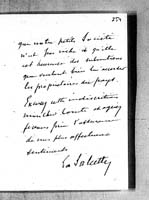 que notre petite Société
n'est pas riche et qu'elle
est heureuse des subventions
que veulent bien lui accorder
les propriétaires du pays.
Excusez cette indiscrétion
Monsieur le Comte et agréez
je vous prie l'assurance
de mes plus affectueux
sentiments